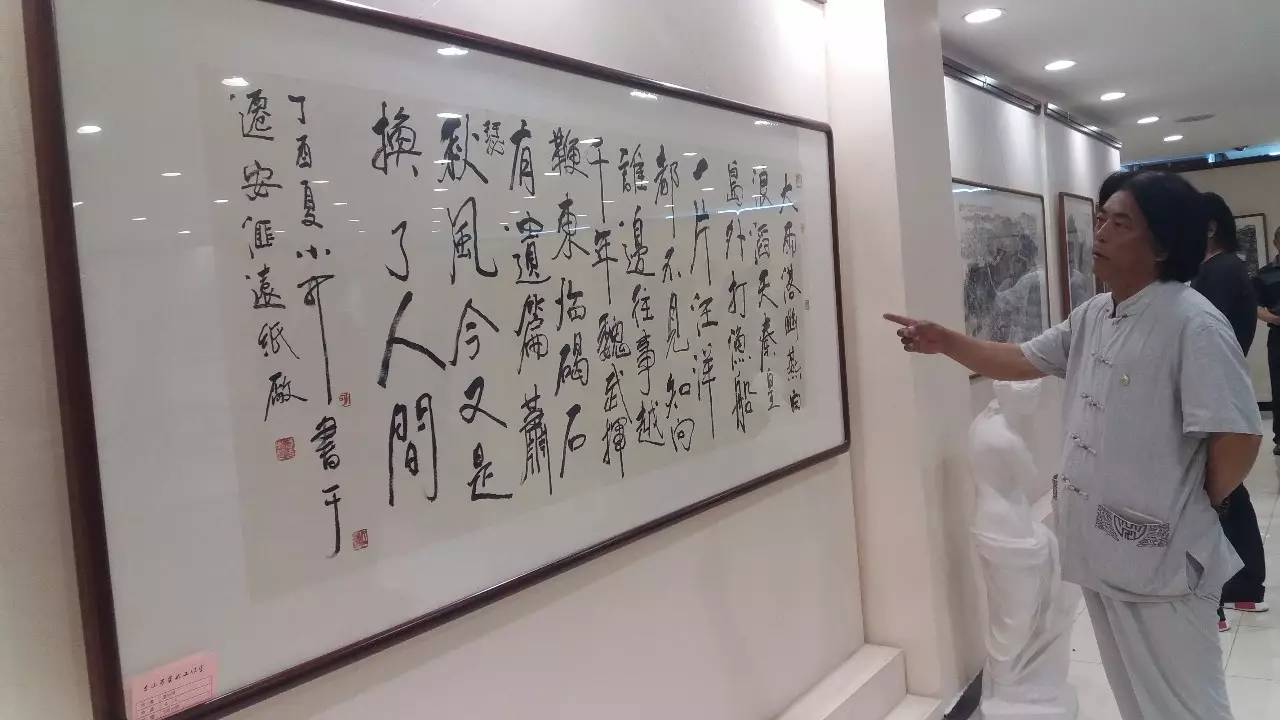 大雨落幽燕白
浪滔天秦皇
島外打漁船
一片汪洋
都不見知向
誰邊往事越
千年魏武揮
鞭東临碣石
有遺篇蕭
瑟
秋風今又是
換了人間
丁酉夏小可書于
遷安匯遠紙廠